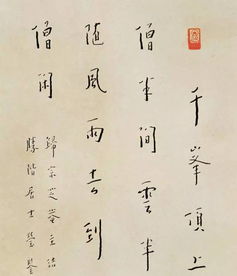 千峯頂上
僧半間雲半
隨風雨去到
僧閑
歸宗芝菴主
勝階居士